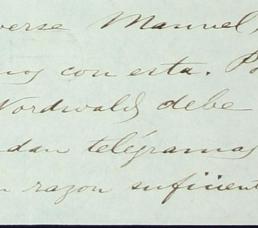 verse Manuel,
con esta.
Nordwald debe
dan telégramas
razon suficient